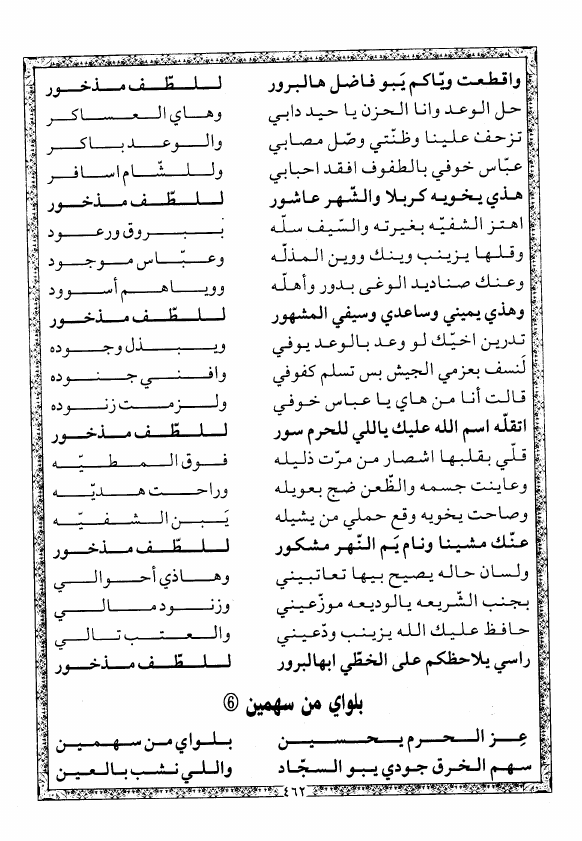 واقطعت ويّاكم يَبو فاضل هالبرور للطّف مذخور
حل الوعد وانا الحزن يا حيد دابي وهاي العساكر
تزحف علينا وظنّتي وصّل مصابي والوعد باكر
عبّاس خوفي بالطفوف افقد احبابي وللشّام اسافر
هذي يخويه كربلا والشّهر عاشور للطّف مذخور
اهتز الشفيّه بغيرته والسّيف سلّه بروق ورعود
وقلها يزينب وينك ووين المذلّه وعبّاس موجود
وعنك صناديد الوغى بدور وأهلّه وياهم أسوود
وهذي يميني وساعدي وسيفي المشهور للطّف مذخور
تدرين اخيّك لو وعد بالوعد يوفي ويبذل وجوده
لَنسف بعزمي الجيش بس تسلم كفوفي وافني جنوده
قالت أنا من هاي يا عباس خوفي ولزمت زنوده
اتقلّه اسم الله عليك ياللي للحرم سور للطّف مذخور
قلّي بقلبها اشصار من مرّت ذليله فوق المطيّه
وعاينت جسمه والظّعن ضج بعويله وراحت هديّه
وصاحت يخويه وقع حملي من يشيله يَبن الشفيّه
عنّك مشينا ونام يَم النّهر مشكور للطّف مذخور
ولسان حاله يصيح بيها تعاتبيني وهاذي أحوالي
بجنب الشّريعه يالوديعه موزّعيني وزنود مالي
حافظ عليك الله يزينب ودّعيني والعتب تالي
راسي يلاحظكم على الخطّي ابهالبرور للطّف مذخور
بلواي من سهمين ⑥
عِز الحرم يحسين بلواي من سهمين
سهم الخرق جودي يبو السجّاد واللي نشب بالعين
٤٦٢